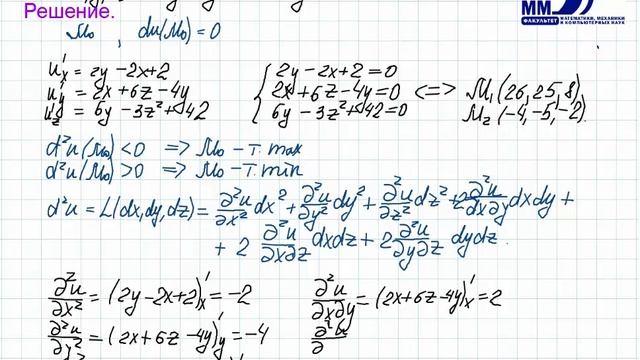 Решение.
ММ
ФАКУЛЬТЕТ
МАТЕМАТИКИ, МЕХАНИКИ
И КОМПЬЮТЕРНЫХ НАУК
M₀, du(M₀)=0
u'ₓ = 2y -2x+2
u'ᵧ = 2x+6z-4y
u'_z = 6y -3z²+42
{ 2y-2x+2=0
2x+6z-4y=0 <=> M₁(26,25,8),
6y-3z²+42=0 M₂(-4,-5,-2).
d²u(M₀)<0 => M₀-т. max
d²u(M₀)>0 => M₀-т. min
d²u = L(dx,dy,dz) = ∂²u/∂x² dx² + ∂²u/∂y² dy² + ∂²u/∂z² dz² + 2 ∂²u/∂x∂y dxdy +
+ 2 ∂²u/∂x∂z dxdz + 2 ∂²u/∂y∂z dydz.
∂²u/∂x² = (2y-2x+2)'ₓ = -2
∂²u/∂x∂y = (2x+6z-4y)'ₓ = 2
∂²u/∂y² = (2x+6z-4y)'ᵧ = -4
∂²u/∂